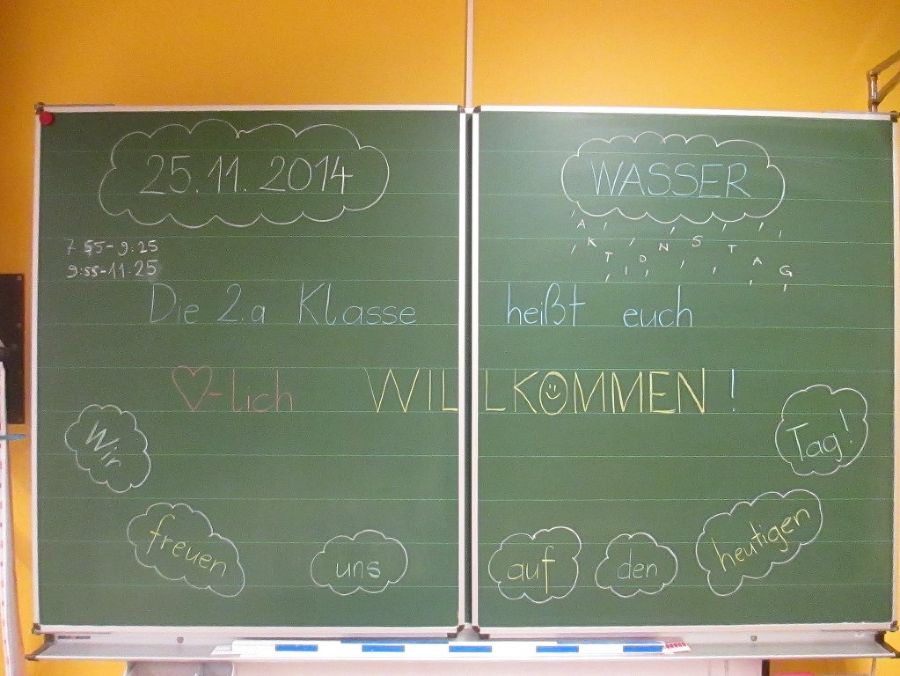 25.11.2014
WASSER
AKTIONSTAG
7 55-9:25
9:55-11.25
Die 2.a Klasse heißt euch
♡-lich WILLKOMMEN!
Wir freuen uns auf den heutigen Tag!